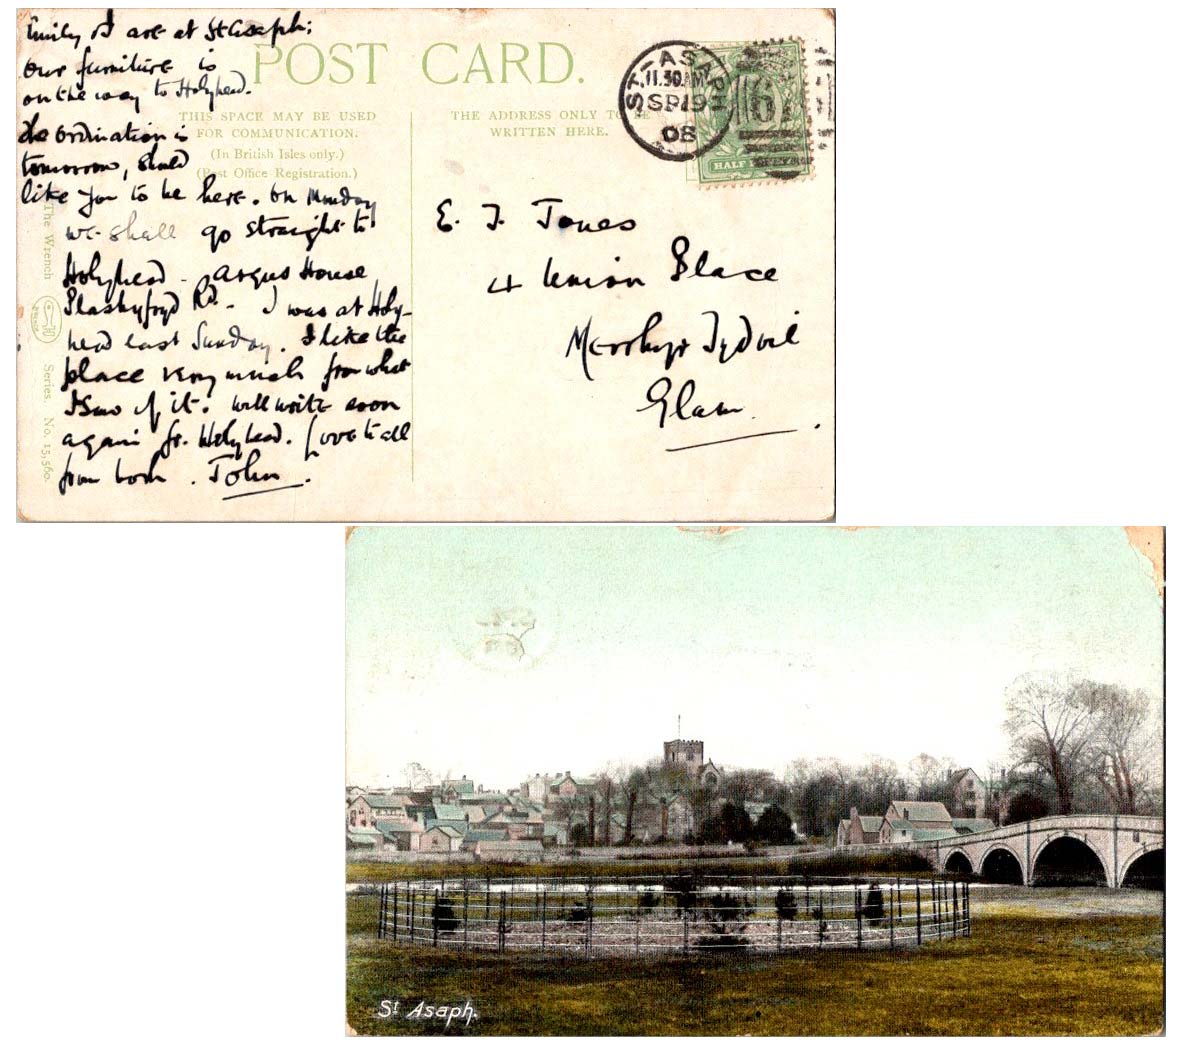 Emily & I are at St Asaph;
our furniture is
on the way to Holyhead.
The Ordination is
tomorrow, should
like you to be here. On Monday
we shall go straight to
Holyhead - Argus House
Rd. - I was at Holy-
head last Sunday. I like the
place very much from what
I saw of it. Will write soon
again fr. Holyhead. Love to all
from both. John.
POST CARD.
THIS SPACE MAY BE USED
FOR COMMUNICATION.
(In British Isles only.)
(Post Office Registration.)
THE ADDRESS ONLY TO BE
WRITTEN HERE.
The Wrench
Series. No. 15,560.
ST. ASAPH
11.30AM
SP 19
08
HALF PENNY
E. J. Jones
4 Union Place
Merthyr Tydvil
Glam.
St Asaph.